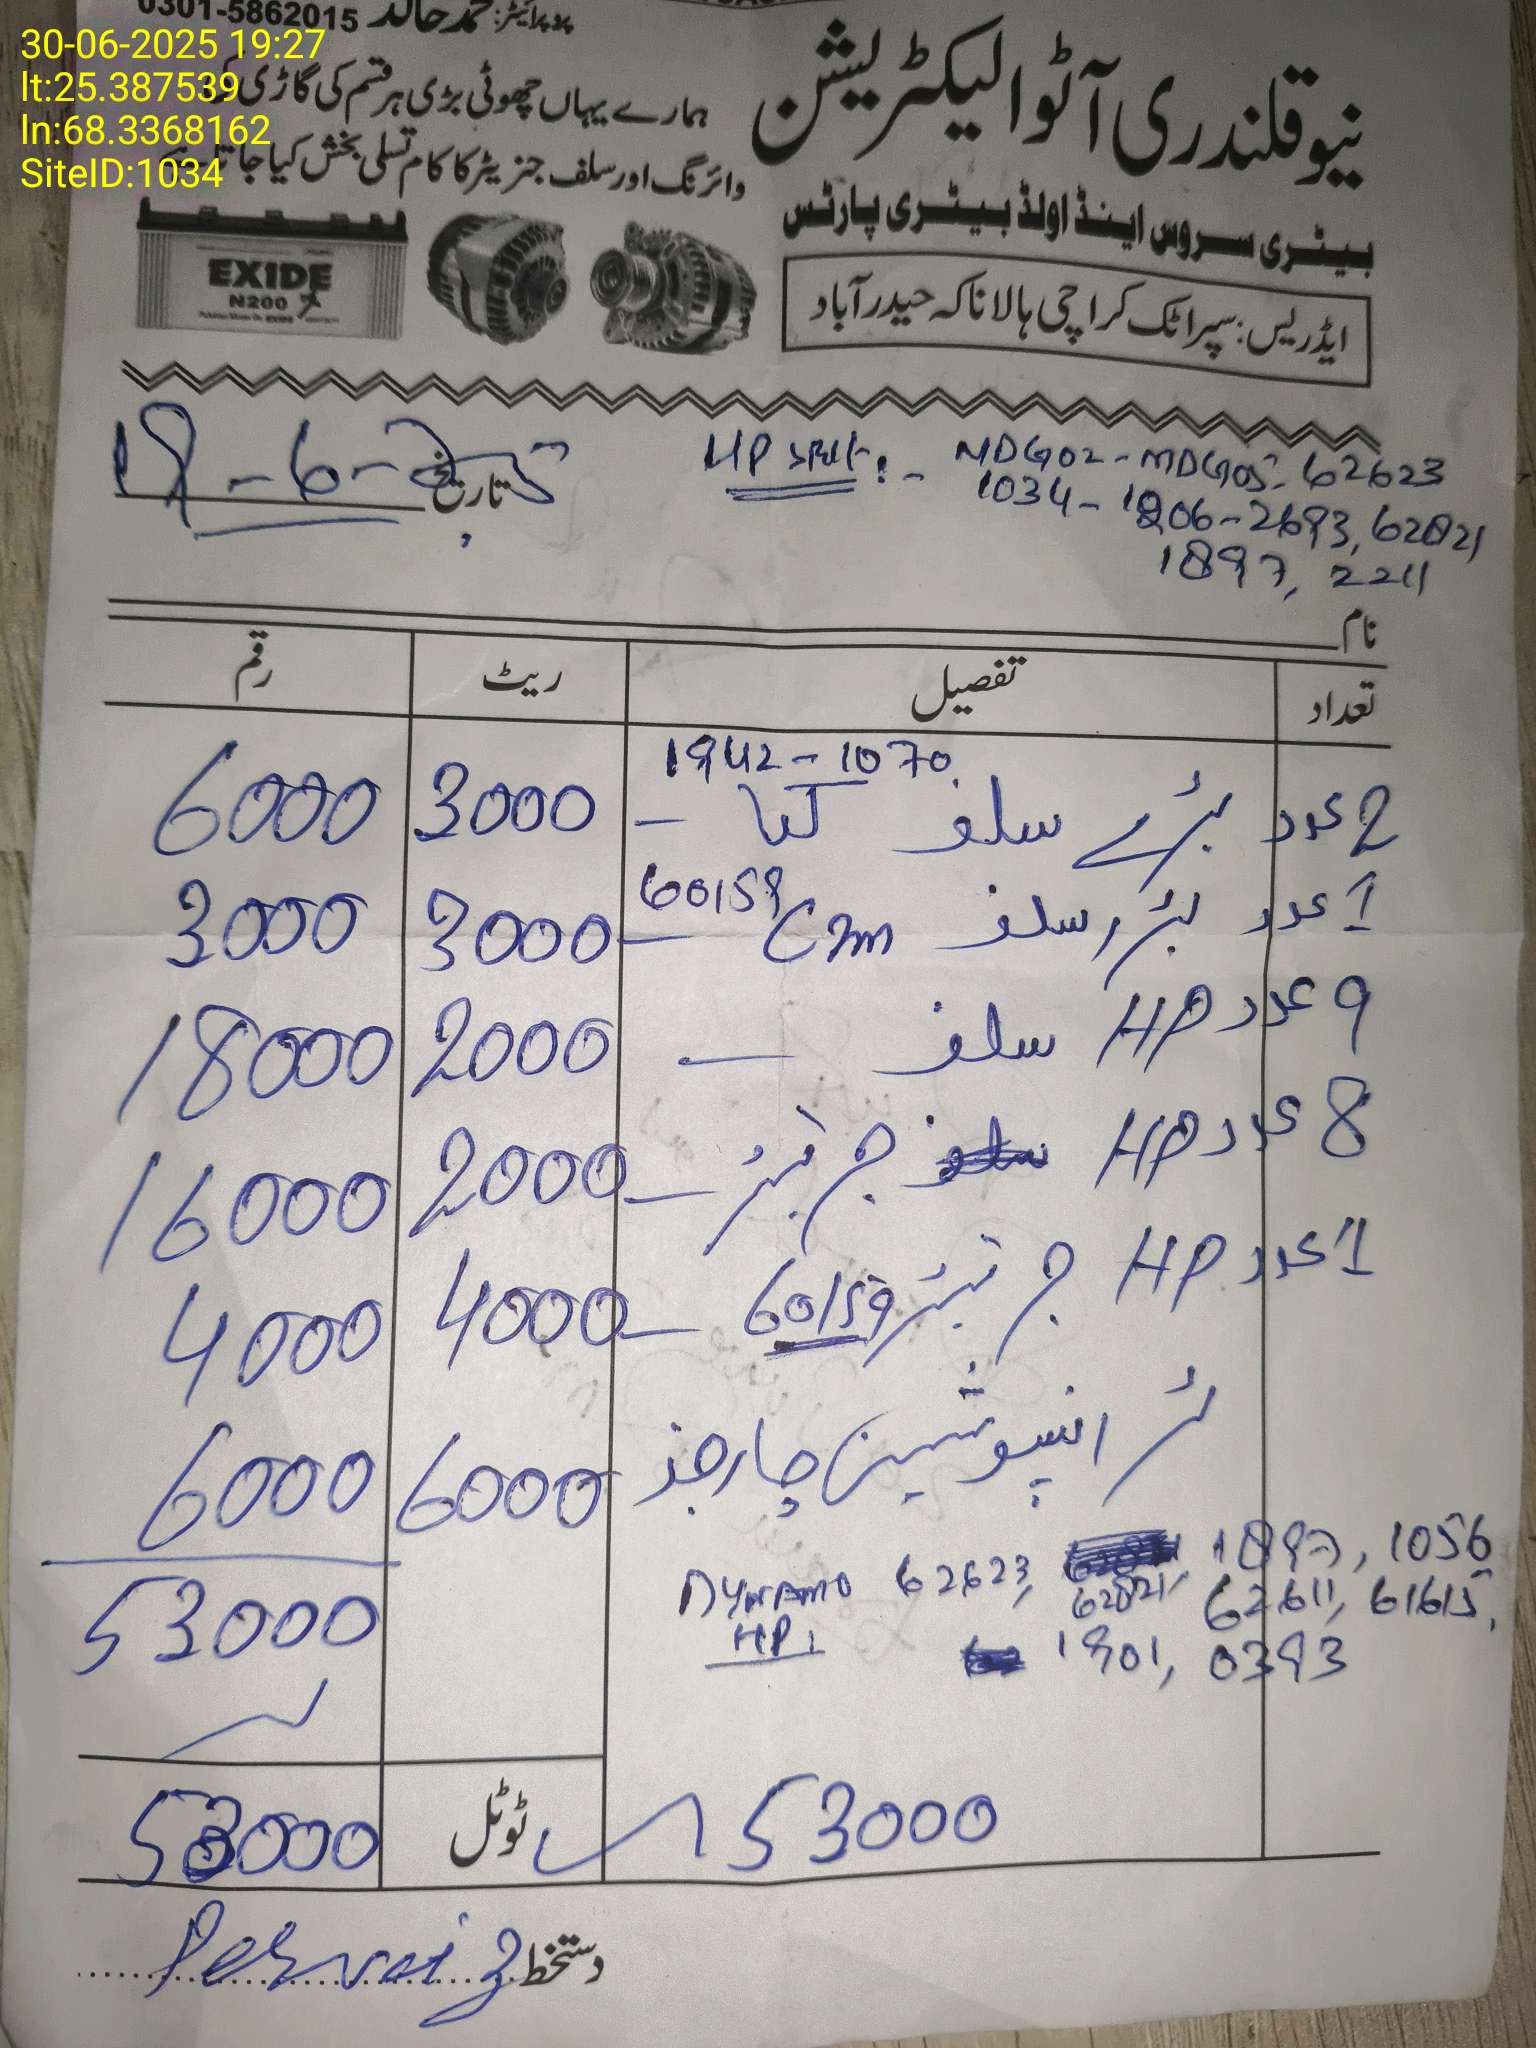 30-06-2025 19:27
lt:25.387539
ln:68.3368162
SiteID:1034
پروپرائیٹر: محمد خالد 0301-5862015
نیو قلندری آٹو الیکٹریشن
ہمارے یہاں چھوٹی بڑی ہر قسم کی گاڑی کی
وائرنگ اور سلف جنریٹر کا کام تسلی بخش کیا جاتا ہے
بیٹری سروس اینڈ اولڈ بیٹری پارٹس
ایڈریس: سپر اٹک کراچی ہالا ناکہ حیدر آباد
EXIDE
N200
تاریخ 18-6-25
HP سلف :- MDG02 - MDG05, 62623
1034 - 1206 - 2693, 62821
1897, 2211
نام
تعداد تفصیل ریٹ رقم
1942 - 1070
2 عدد بڑے سلف کیا - 3000 6000
1 عدد بڑا سلف 60159 - 3000 3000
9 عدد HP سلف - 2000 18000
8 عدد HP جرنیٹر - 2000 16000
1 عدد HP جرنیٹر 60159 - 4000 4000
ٹرانسپوٹیشن چارجز 6000 6000
Dynamo HP: 62623, 62821, 1897, 1056
62611, 61615,
1901, 0393
53000
53000 ٹوٹل 53000
دستخط Pervaiz